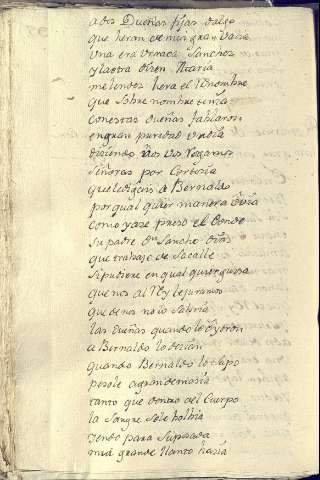 a dos Dueñas fijas dalgo
que heran de muy gran valia
una era Urraca Sanchez
y la otra dizen Maria
melendez hera el Renombre
que sobre nombre tenia
con estas dueñas fablaron
en gran puridad un dia
diziendo Nos vos Rogamos
señoras por cortesia
que le digais a Bernaldo
por qual quier manera o via
como yaze preso el Conde
su padre Dn Sancho Dias
que trabaje de sacalle
si pudiere en qual quier guissa
que nos al Rey le juramos
que de nos no lo sabria
las dueñas quando lo oyeron
a Bernaldo lo dezian
quando Bernaldo lo supo
pesole a gran demasia
tanto que dentro del Cuerpo
la sangre sele bolbia
yendo para su posada
muy grande llanto hazia